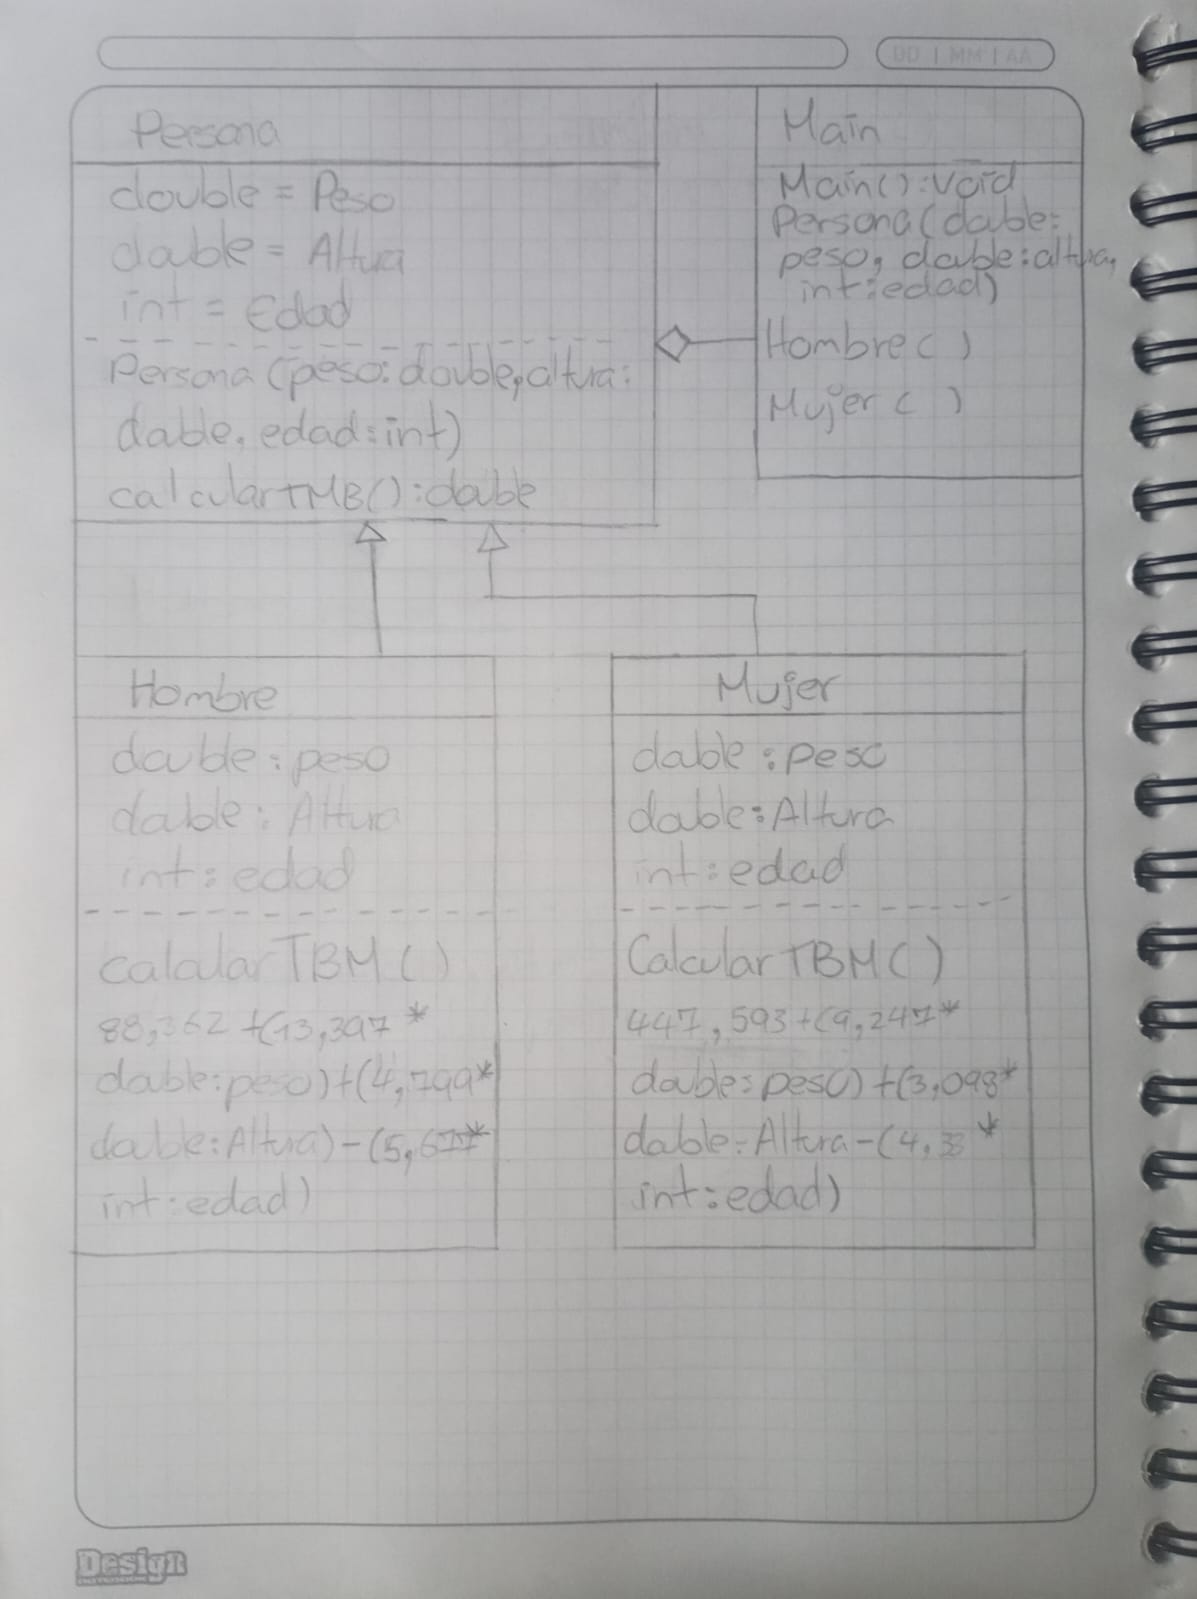 DD | MM | AA
Persona
double = Peso
dable = Altura
int = Edad
Persona (peso: double, altura:
dable, edad: int)
calcularTMB(): dable
Main
Main(): void
Persona (dable:
peso, dable: altura,
int: edad)
Hombre ( )
Mujer ( )
Hombre
double : peso
dable : Altura
int : edad
calcular TBM ( )
88,362 + (13,397 *
double: peso) + (4,799 *
dable: Altura) - (5,677 *
int: edad)
Mujer
dable : peso
dable : Altura
int : edad
Calcular TBM ( )
447, 593 + (9,247 *
dable: peso) + (3,098 *
dable: Altura - (4,33 *
int: edad)
Design